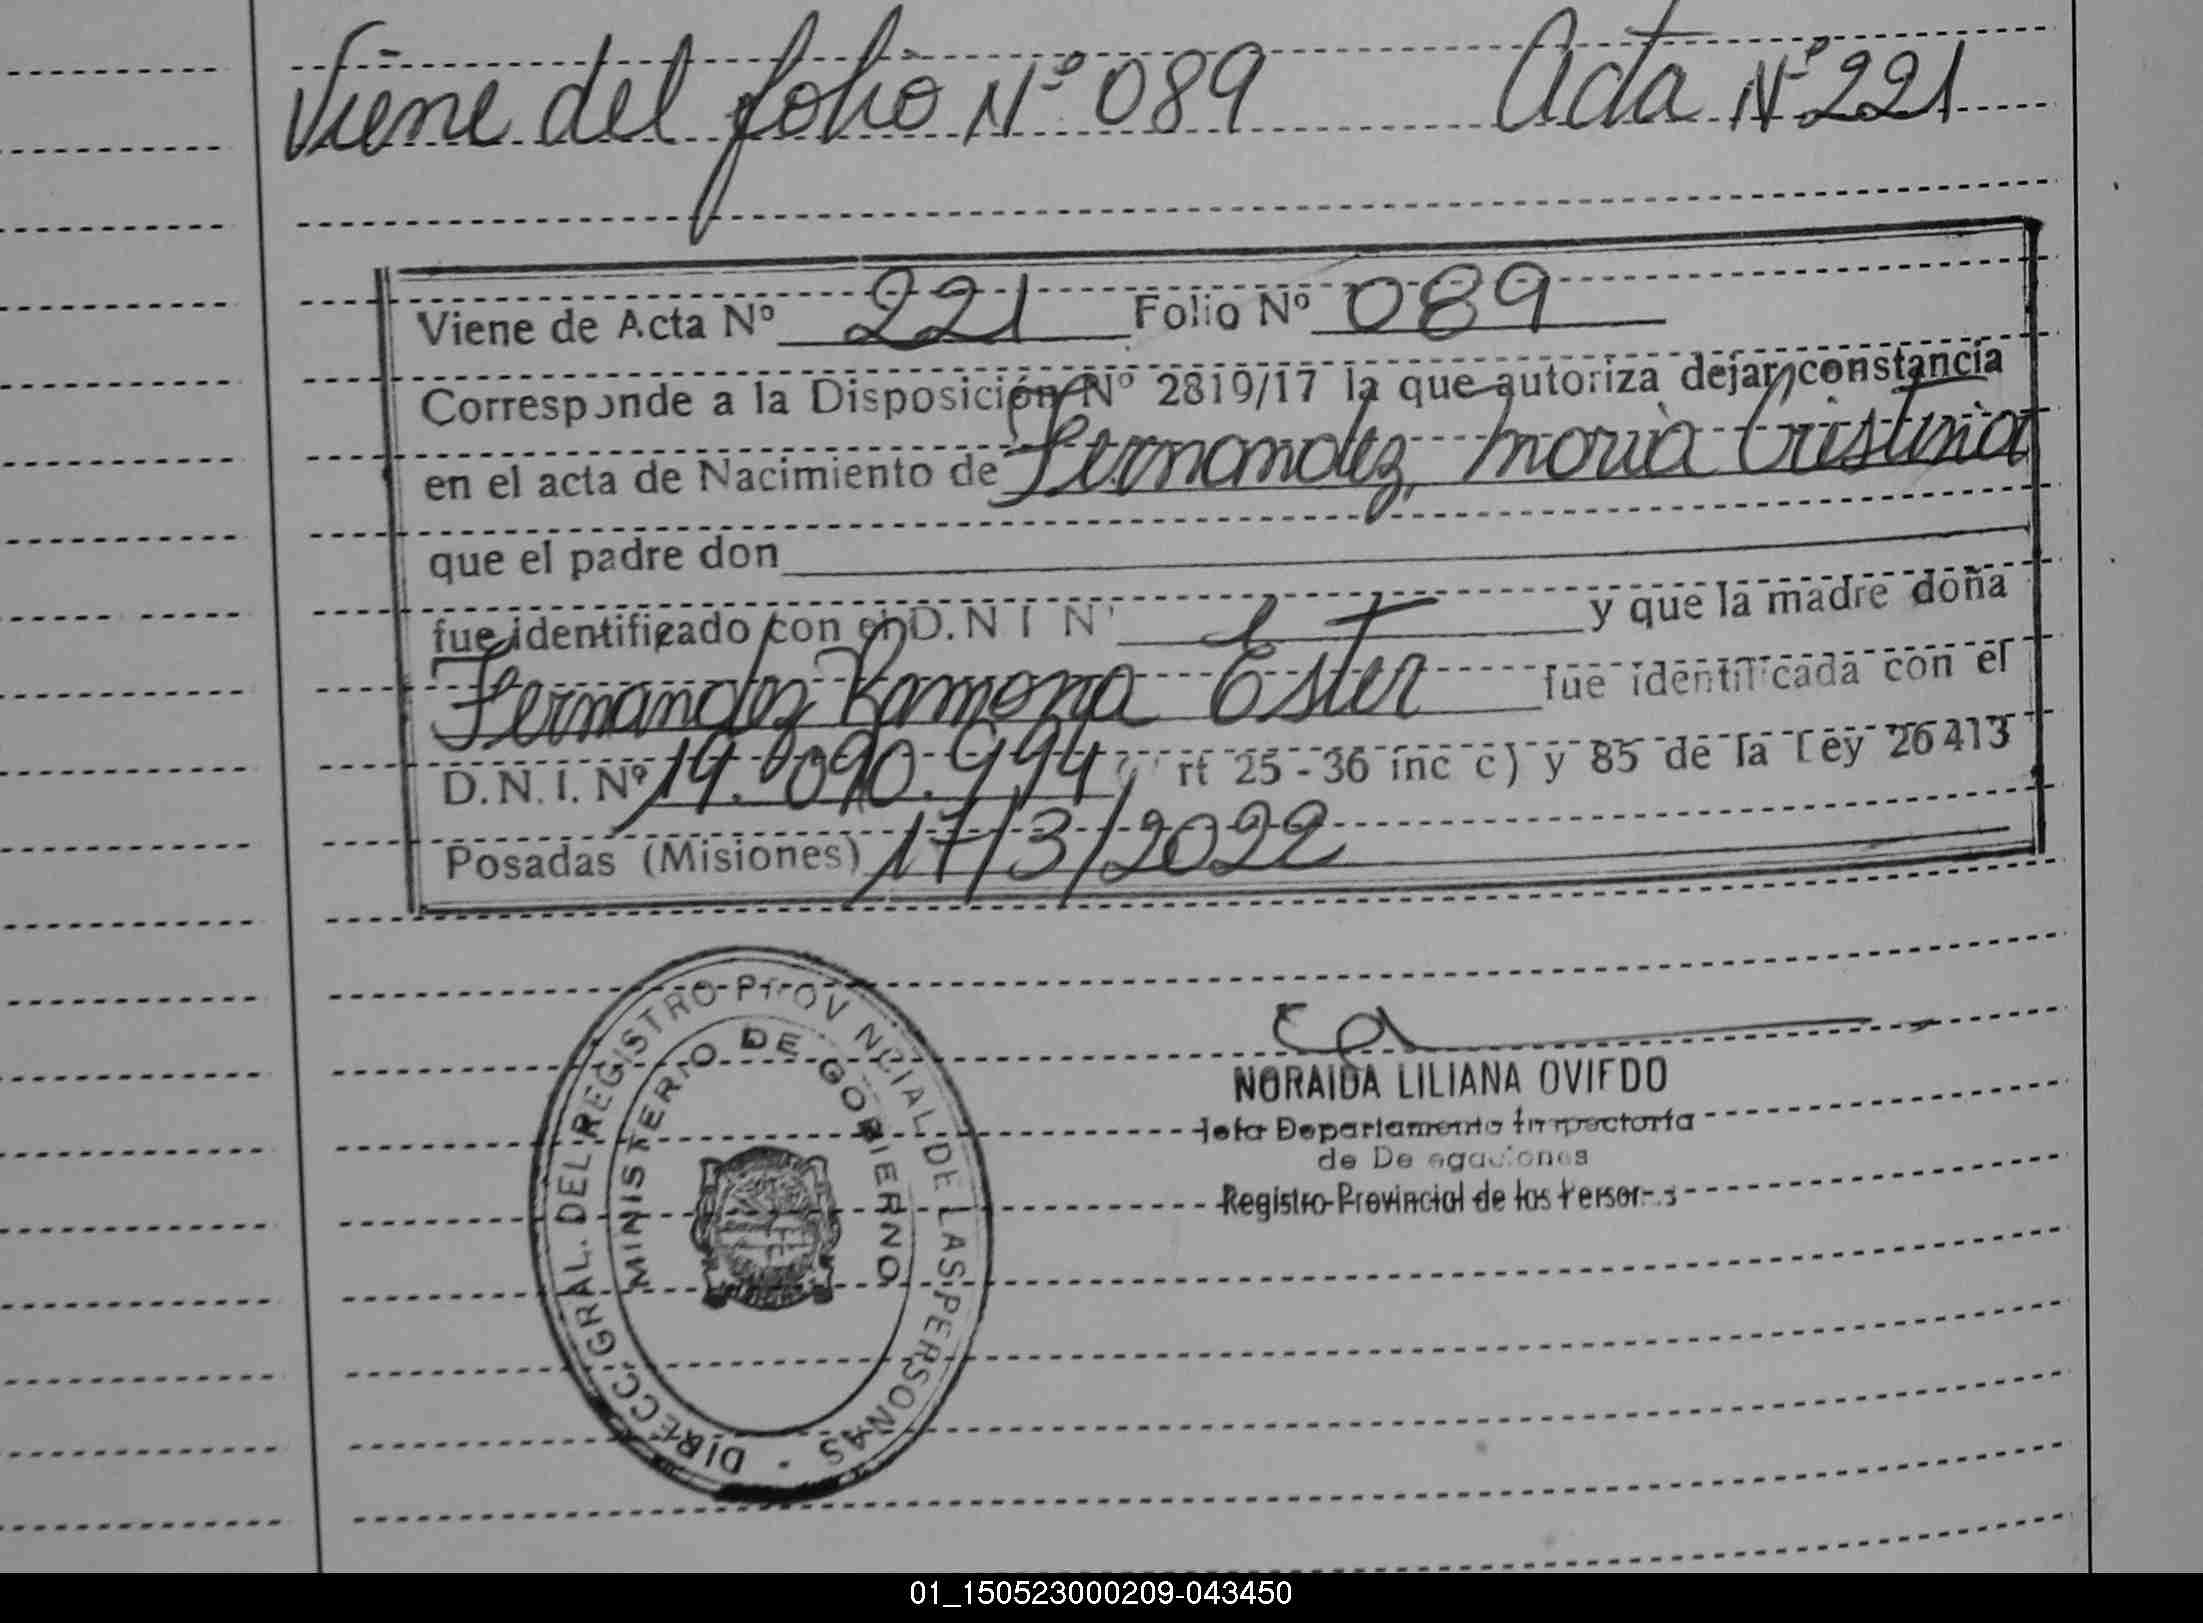 Viene del folio Nº 089 Acta Nº 221
Viene de Acta Nº 221 Folio Nº 089
Corresponde a la Disposición Nº 2819/17 la que autoriza dejar constancia
en el acta de Nacimiento de Fernandez, María Cristina
que el padre don
fue identificado con el D.N.I Nº y que la madre doña
Fernandez Ramona Ester fue identificada con el
D.N.I. Nº 14.090.994 rt 25-36 inc c) y 85 de la Ley 26413
Posadas (Misiones) 17/3/2022
DIRECC. GRAL. DEL REGISTRO PROVINCIAL DE LAS PERSONAS
MINISTERIO DE GOBIERNO
NORAIDA LILIANA OVIEDO
Jefa Departamento Inspectoría
de Delegaciones
Registro Provincial de las Personas
01_150523000209-043450